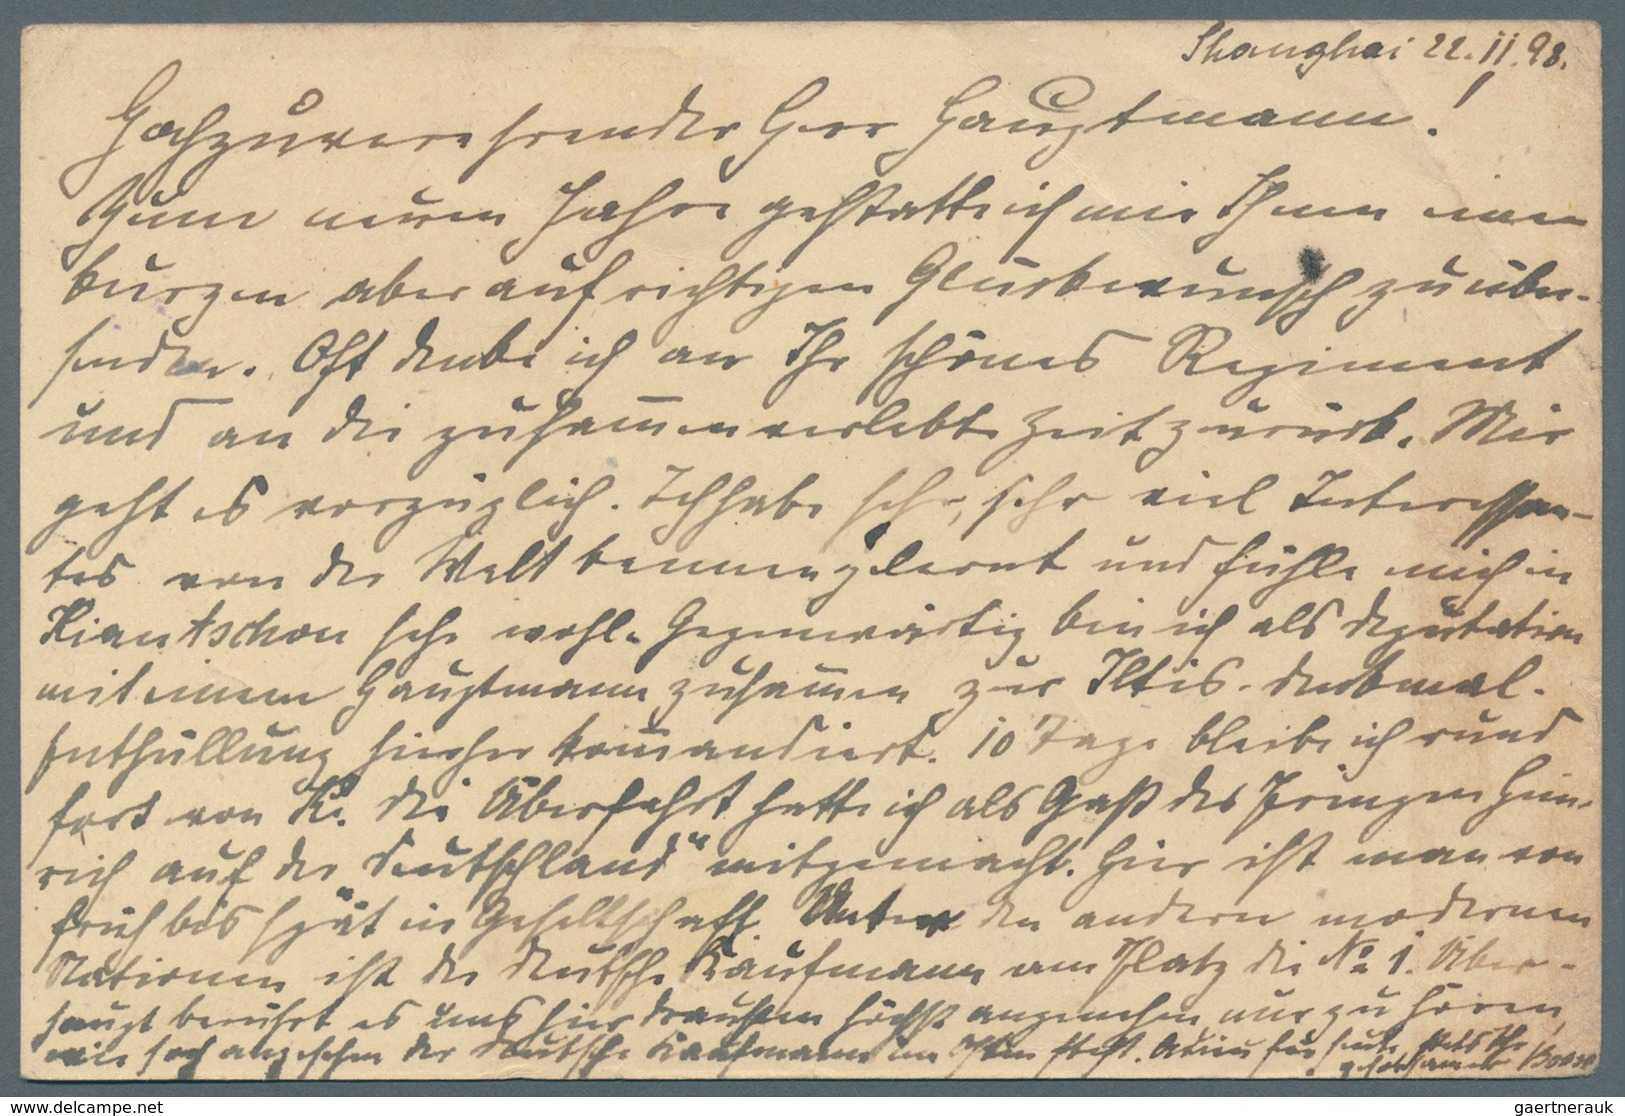 Shanghai 22.11.98.
Hochzuverehrender Herr Hauptmann!
Zum neuen Jahre gestatte ich mir Ihnen einen
kurzen aber aufrichtigen Glückwunsch zu über-
senden. Oft denke ich an Ihr schönes Regiment
und an die zusammen verlebte Zeit zurück. Mir
geht es vorzüglich. Ich habe sehr, sehr viel Interessan-
tes von der Welt kennengelernt und fühle mich in
Kiautschou sehr wohl. Gegenwärtig bin ich als Deputation
mit einem Hauptmann zusammen zur Iltis-Denkmal-
Enthüllung hierher kommandiert. 10 Tage bleibe ich rund
fort von K. Die Überfahrt hatte ich als Gast des Prinzen Hein-
rich auf der „Deutschland“ mitgemacht. Hier ist man von
früh bis spät in Gesellschaft. Unter den anderen modernen
Nationen ist der deutsche Kaufmann am Platz die No 1. Über-
haupt berührt es uns hier draußen höchst angenehm nur zu hören,
wie hoch angesehen der deutsche Kaufmann im Osten steht. Adieu für heute, stets Ihr
gehorsamer